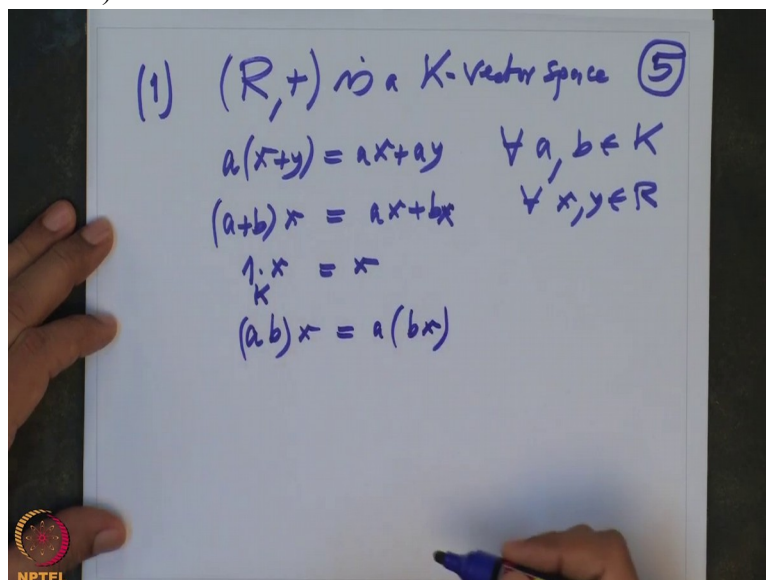 (1) (R,+) is a K-vector space 5
a(x+y) = ax+ay ∀ a, b ∈ K
(a+b)x = ax+bx ∀ x, y ∈ R
1_K·x = x
(ab)x = a(bx)
NPTEL